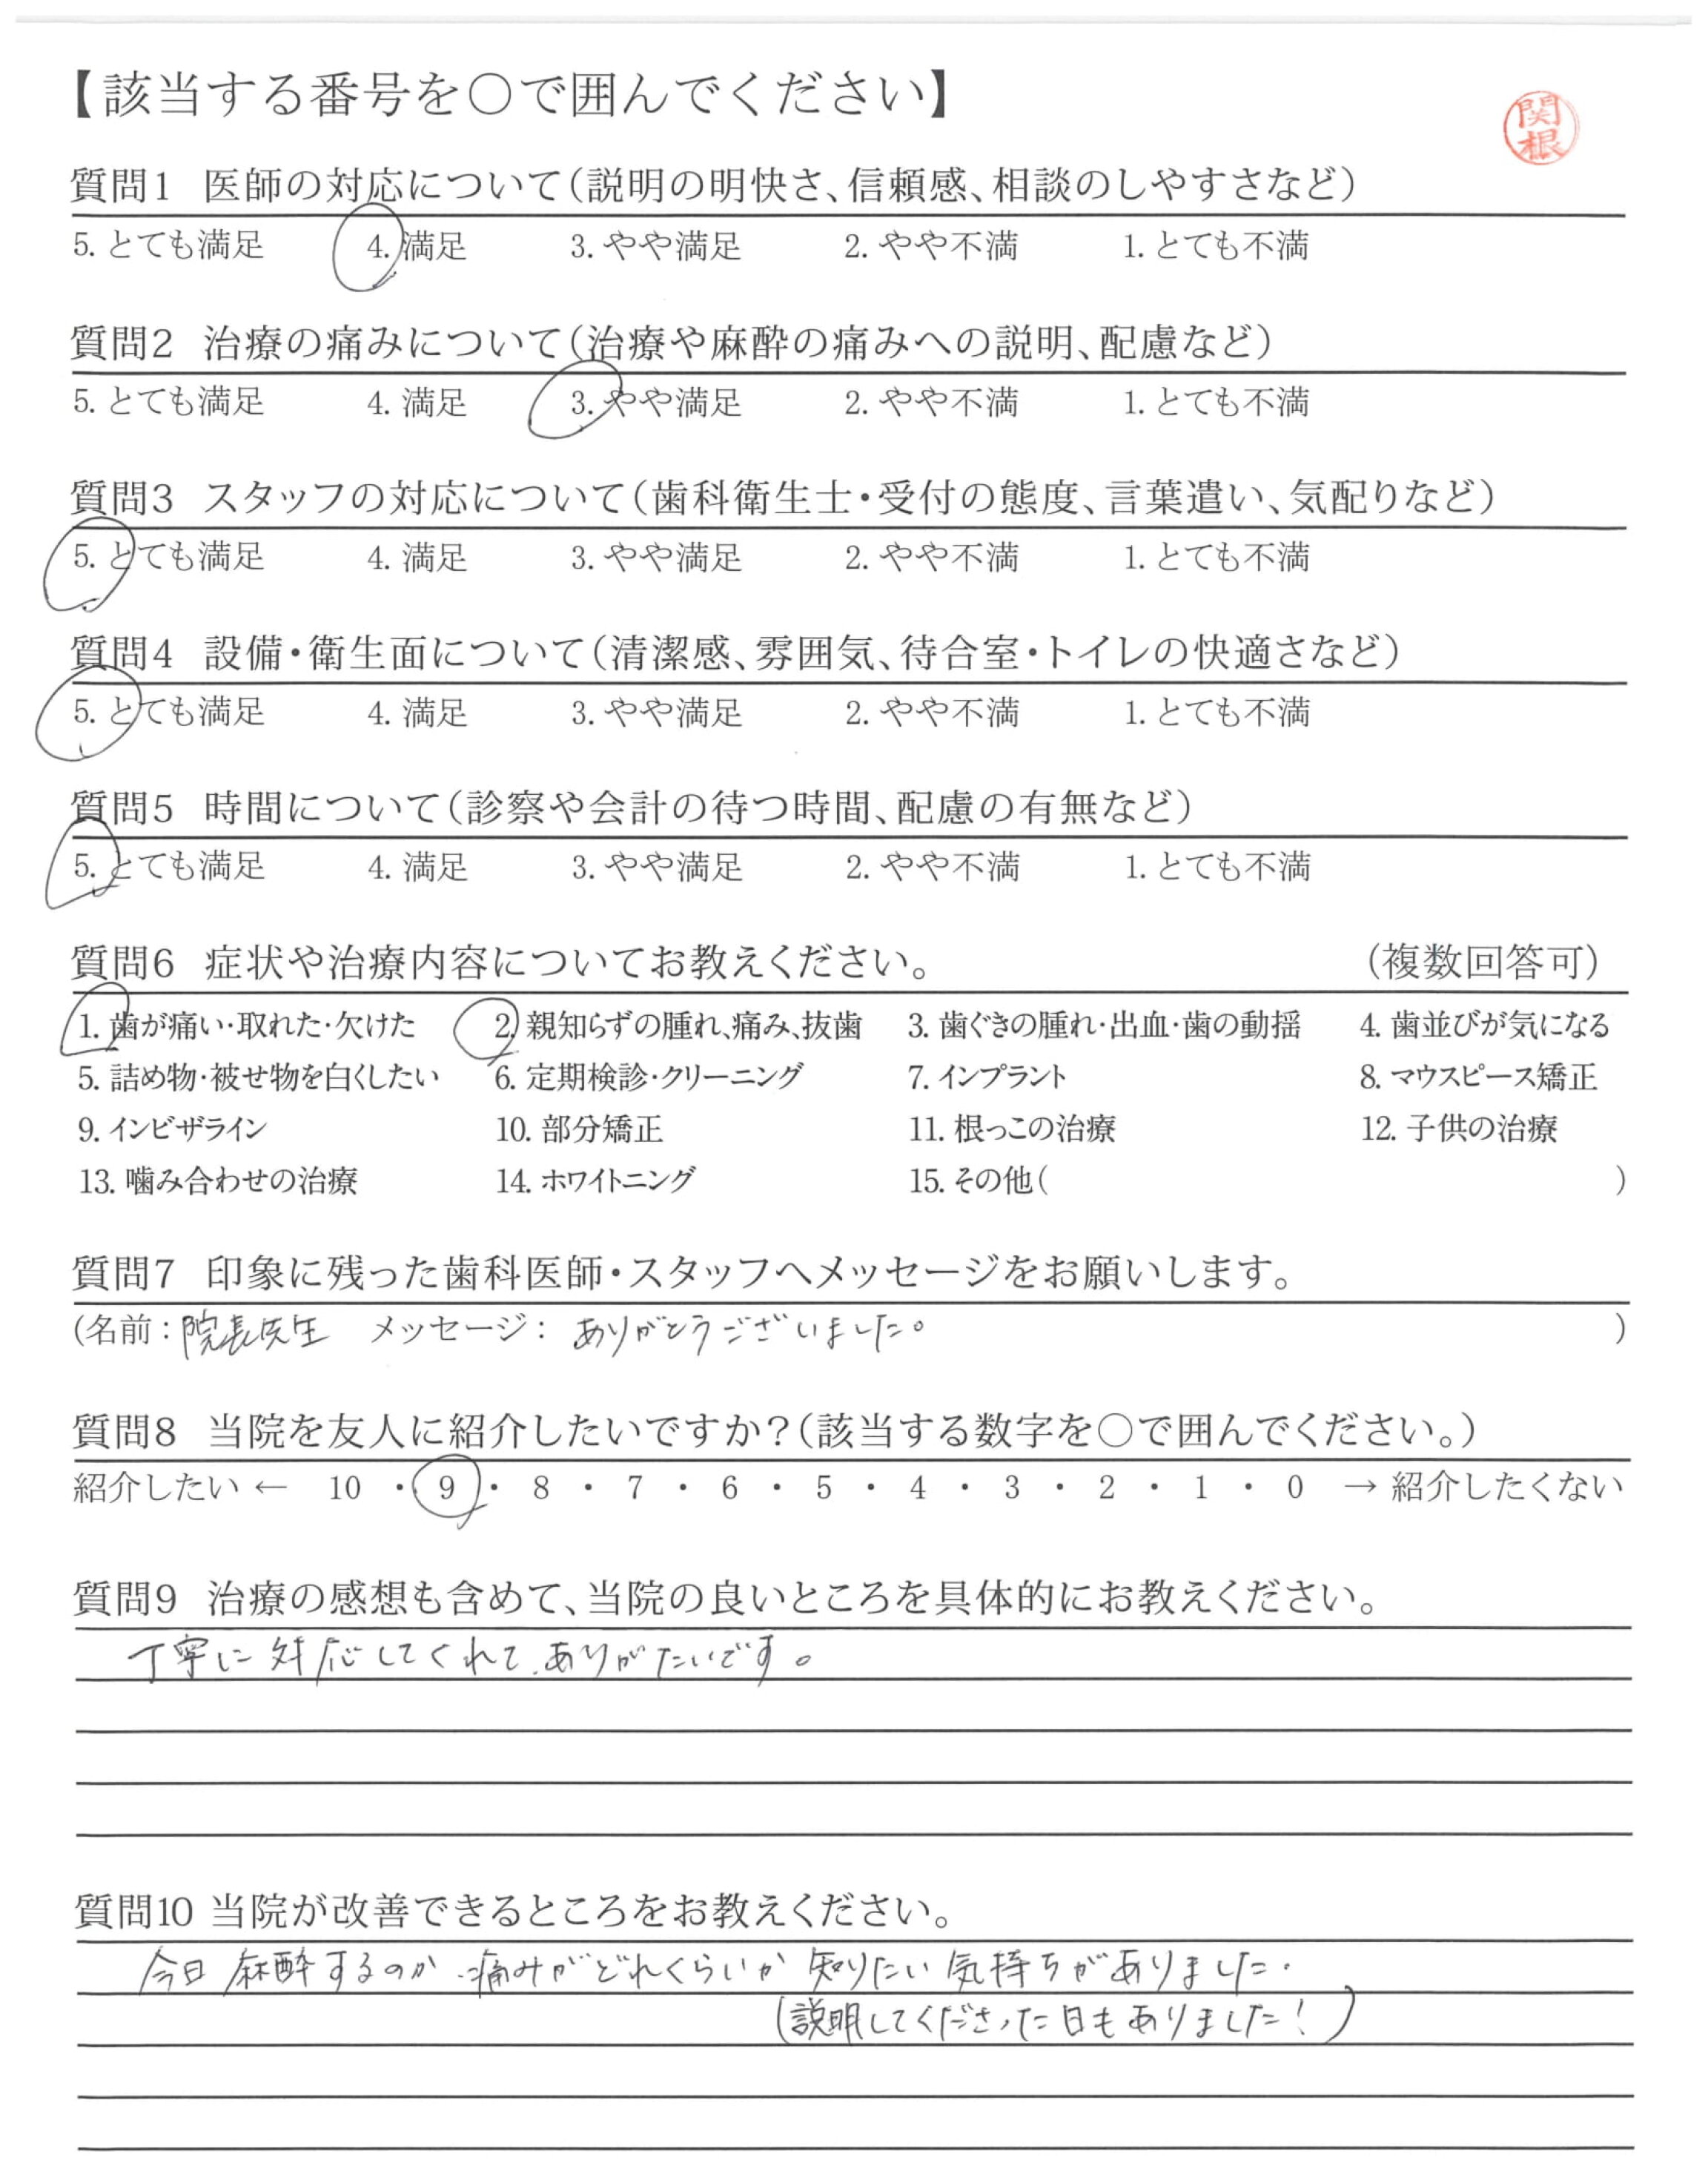 【該当する番号を○で囲んでください】
関根
質問1 医師の対応について(説明の明快さ、信頼感、相談のしやすさなど)
5. とても満足 4. 満足 3. やや満足 2. やや不満 1. とても不満
質問2 治療の痛みについて(治療や麻酔の痛みへの説明、配慮など)
5. とても満足 4. 満足 3. やや満足 2. やや不満 1. とても不満
質問3 スタッフの対応について(歯科衛生士・受付の態度、言葉遣い、気配りなど)
5. とても満足 4. 満足 3. やや満足 2. やや不満 1. とても不満
質問4 設備・衛生面について(清潔感、雰囲気、待合室・トイレの快適さなど)
5. とても満足 4. 満足 3. やや満足 2. やや不満 1. とても不満
質問5 時間について(診察や会計の待つ時間、配慮の有無など)
5. とても満足 4. 満足 3. やや満足 2. やや不満 1. とても不満
質問6 症状や治療内容についてお教えください。 (複数回答可)
1. 歯が痛い・取れた・欠けた 2. 親知らずの腫れ、痛み、抜歯 3. 歯ぐきの腫れ・出血・歯の動揺 4. 歯並びが気になる
5. 詰め物・被せ物を白くしたい 6. 定期検診・クリーニング 7. インプラント 8. マウスピース矯正
9. インビザライン 10. 部分矯正 11. 根っこの治療 12. 子供の治療
13. 噛み合わせの治療 14. ホワイトニング 15. その他( )
質問7 印象に残った歯科医師・スタッフへメッセージをお願いします。
(名前：院長先生 メッセージ： ありがとうございました。 )
質問8 当院を友人に紹介したいですか？(該当する数字を○で囲んでください。)
紹介したい ← 10 ・ 9 ・ 8 ・ 7 ・ 6 ・ 5 ・ 4 ・ 3 ・ 2 ・ 1 ・ 0 → 紹介したくない
質問9 治療の感想も含めて、当院の良いところを具体的にお教えください。
丁寧に対応してくれて、ありがたいです。
質問10 当院が改善できるところをお教えください。
今日麻酔するのか、痛みがどれくらいか知りたい気持ちがありました。
(説明してくださった日もありました！)